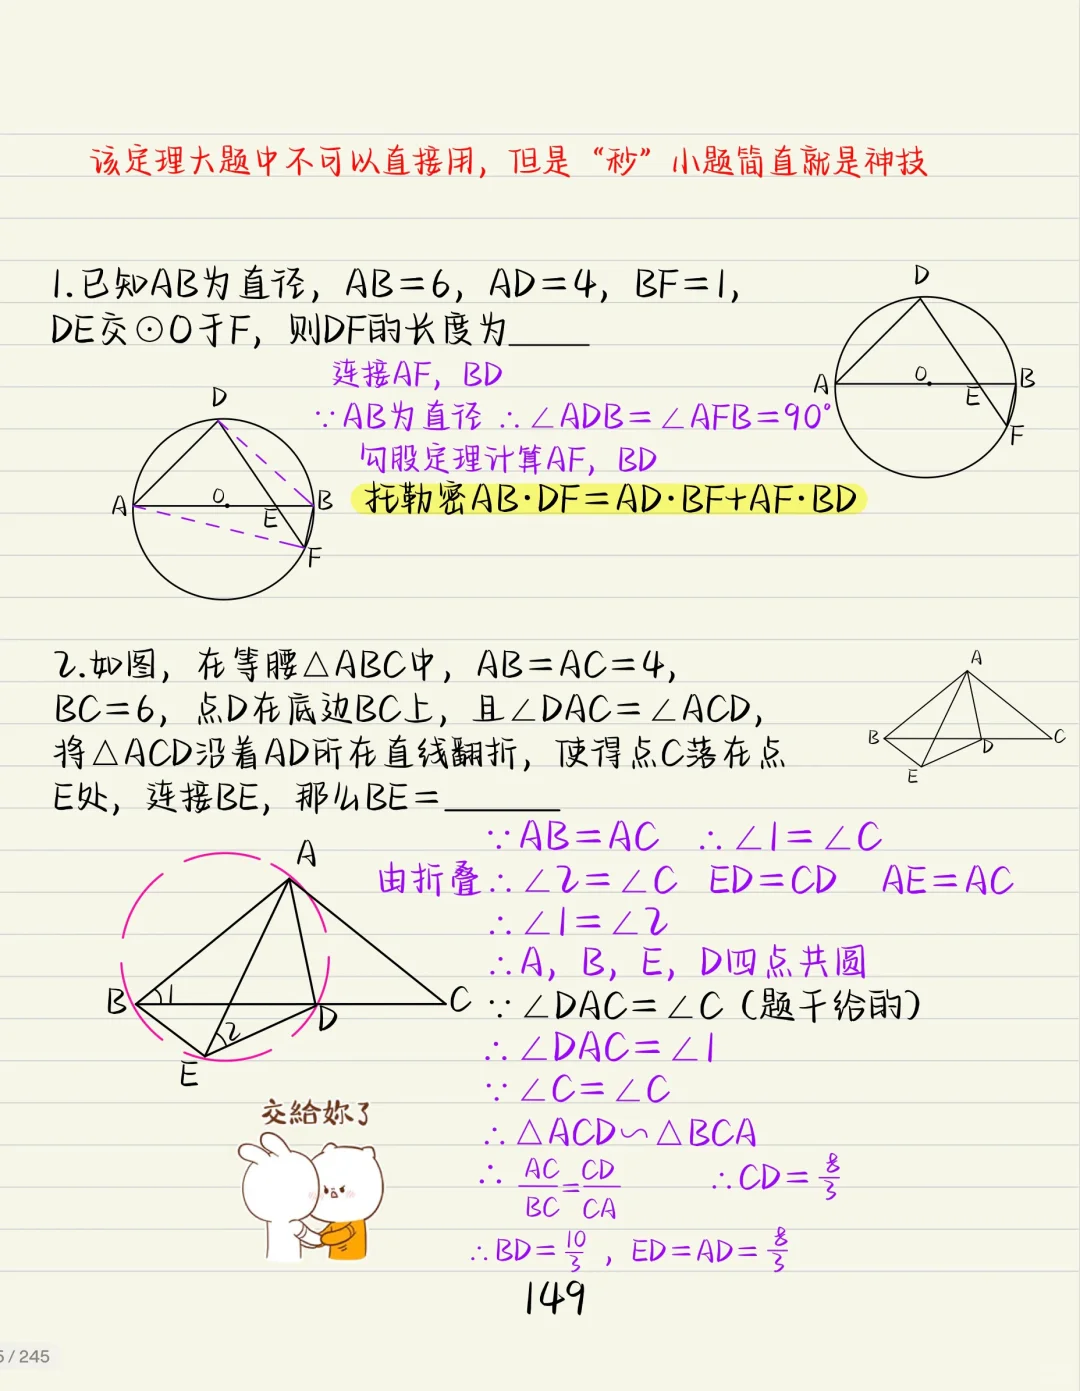 该定理大题中不可以直接用，但是“秒”小题简直就是神技
1.已知AB为直径，AB=6，AD=4，BF=1，
DE交⊙O于F，则DF的长度为____
连接AF，BD
∵AB为直径 ∴∠ADB=∠AFB=90°
勾股定理计算AF，BD
托勒密AB·DF=AD·BF+AF·BD
D
A
O
E
B
F
D
A
O
E
B
F
2.如图，在等腰△ABC中，AB=AC=4，
BC=6，点D在底边BC上，且∠DAC=∠ACD，
将△ACD沿着AD所在直线翻折，使得点C落在点
E处，连接BE，那么BE=______
A
B
D
C
E
∵AB=AC ∴∠1=∠C
由折叠∴∠2=∠C ED=CD AE=AC
∴∠1=∠2
∴A，B，E，D四点共圆
∵∠DAC=∠C（题干给的）
∴∠DAC=∠1
∵∠C=∠C
∴△ACD∽△BCA
∴AC/BC=CD/CA ∴CD=8/3
∴BD=10/3，ED=AD=8/3
A
B
1
C
D
2
E
交給妳了
149
5/245